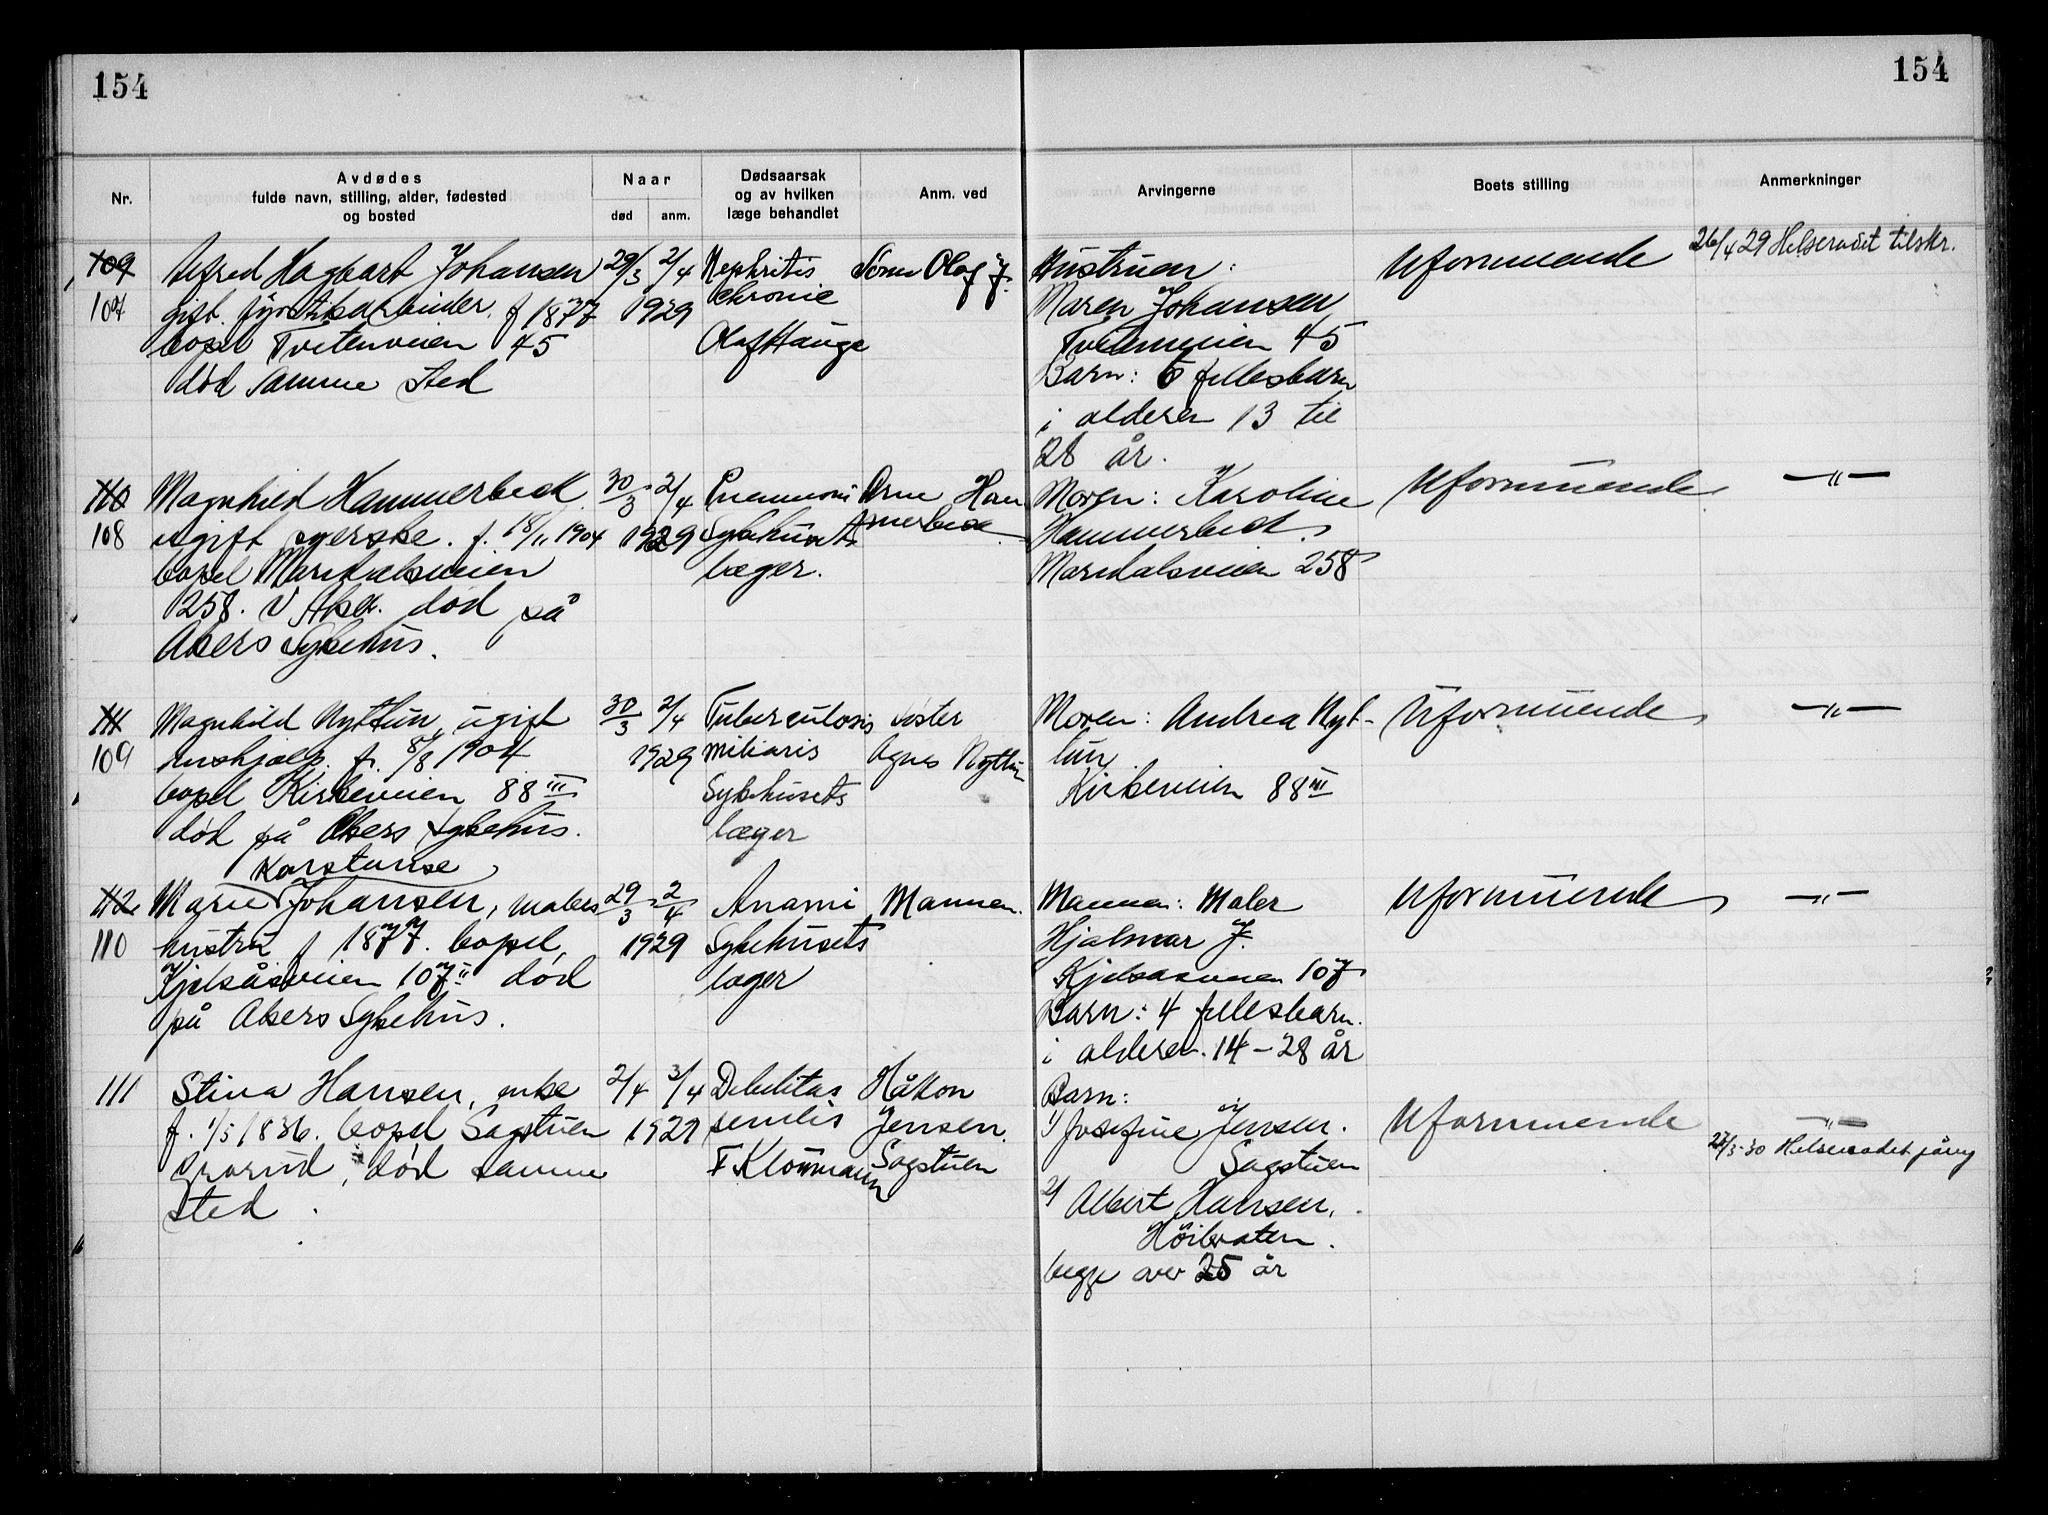 154
154
Nr.
Avdødes
fulde navn, stilling, alder, fødested
og bosted
Naar
død
anm.
Dødsaarsak
og av hvilken
læge behandlet
Anm. ved
Arvingerne
Boets stilling
Anmerkninger
109
107
Alfred Hagbart Johansen
gift. f 1877
bopel Tvetenveien 45
død samme sted
29/3 2/4
1929
Nephritis
chronic
Olaf Hauge
Sønn Olaf J.
Hustruen:
Maren Johansen
Tvetenveien 45
Barn: 6 fellesbarn
i alderen 13 til
28 år.
Uformuende
26/4 29 Helserådet tilskr.
110
108
Magnhild Hammerbeck
ugift syerske. f. 18/11 1904
bopel Maridalsveien
258. V Aker. død på
Akers Sykehus.
30/3 2/4
1929
Pneumoni
Sykehusets
læger.
Arne Ham
merbeck
Moren: Karoline
Hammerbeck
Maridalsveien 258
Uformuende
—"—
111
109
Magnhild Nyttun, ugift
hushjælp. f. 8/8 1904
bopel Kirkeveien 88 III
død på Akers Sykehus.
30/3 2/4
1929
Tuberculosis
miliaris
Sykehusets
læger
søster
Agnes Nyttun
Moren: Andrea Nyt-
tun
Kirkeveien 88 III
Uformuende
—"—
112
110
Karstanse
Marie Johansen, malers
hustru f 1877. bopel,
Kjelsåsveien 107 II død
på Akers Sykehus.
29/3 2/4
1929
Anami
Sykehusets
læger
Mannen.
Mannen: Maler
Hjalmar J.
Kjelsåsveien 107
Barn: 4 fellesbarn.
i alderen. 14 – 28 år
Uformuende
—"—
111
Stina Hansen, enke
f. 1/5 1836. bopel Sagstuen
Grorud, død samme
sted.
2/4 3/4
1929
Debilitas
senilis
F Kloumann
Håkon
Jensen.
Sagstuen
Barn:
1) Josefine Jensen.
Sagstuen
2) Albert Hansen,
Høibråten.
begge over 25 år
Uformuende
—"—
27/3-30 Helserådet